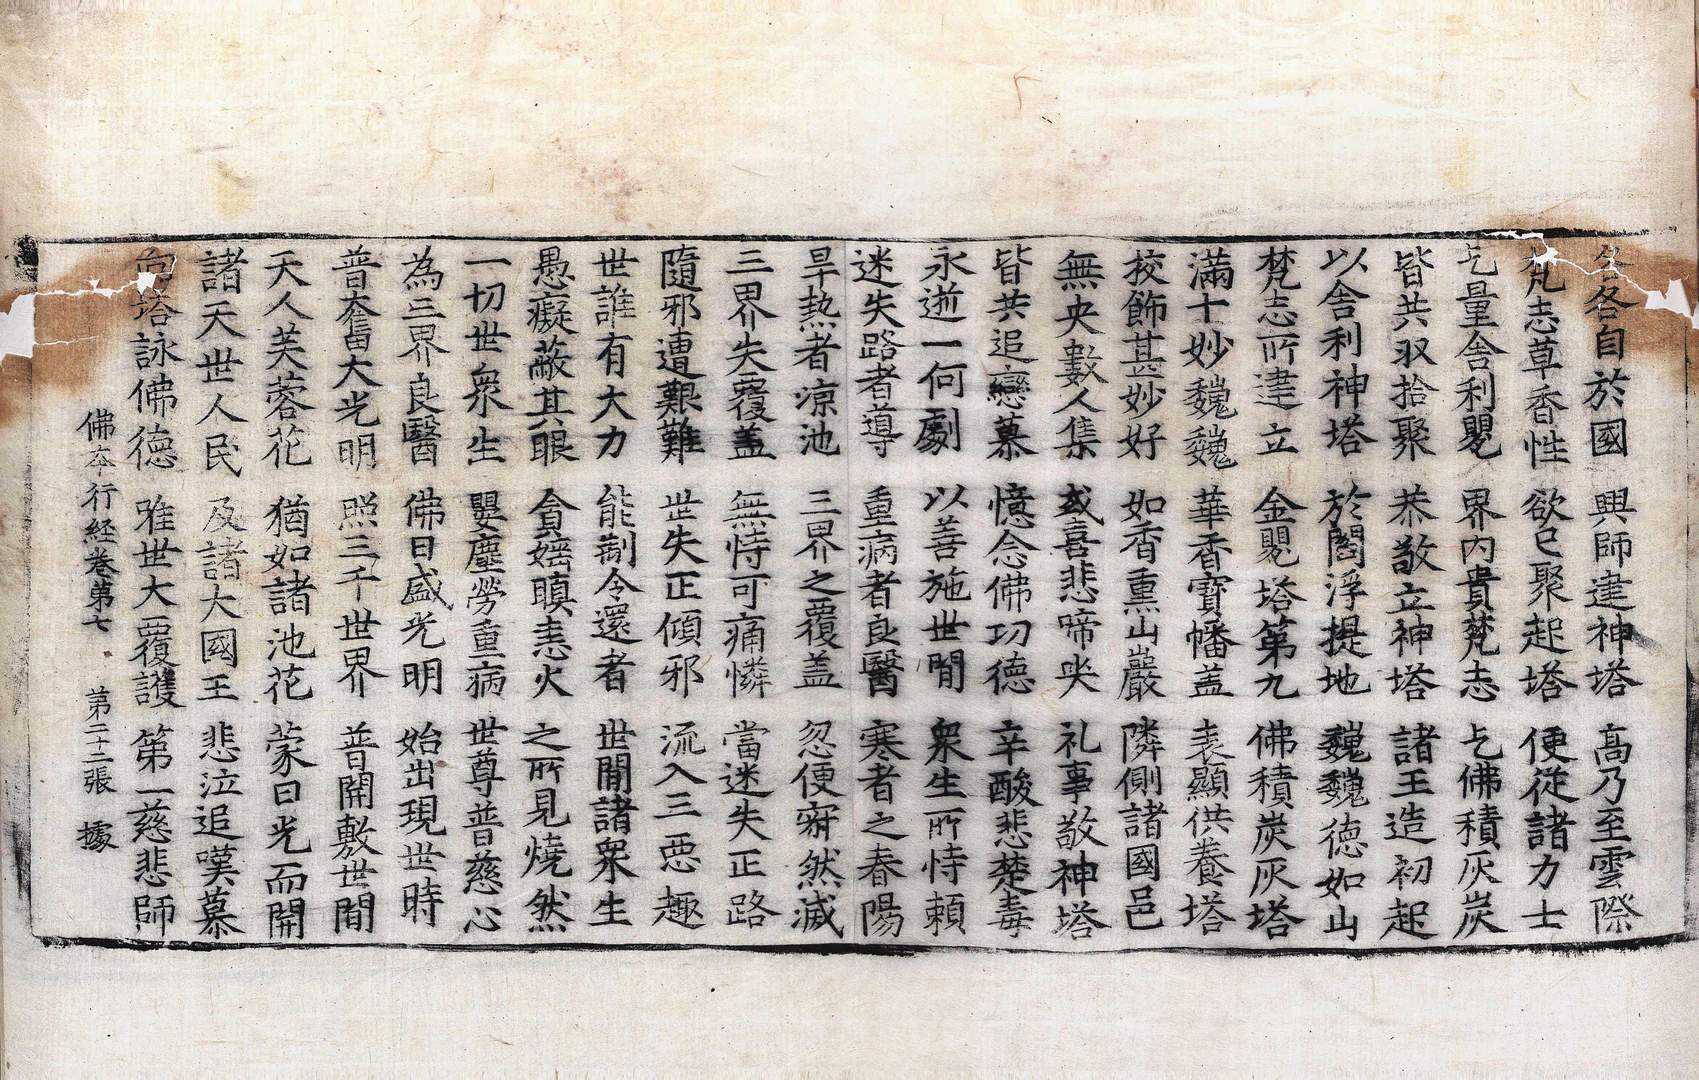 各各自於國 興師建神塔 高乃至雲際
梵志草香性 欲已聚起塔 便從諸力士
乞量舍利甖 界内貴梵志 乞佛積灰炭
皆共収拾聚 恭敬立神塔 諸王造初起
以舍利神塔 於閻浮提地 魏魏德如山
梵志所建立 金甖塔第九 佛積炭灰塔
滿十妙魏魏 華香寳幡蓋 表顯供養塔
挍飾甚妙好 如香熏山巖 隣側諸國邑
無央數人集 或喜悲啼哭 礼事敬神塔
皆共追戀慕 憶念佛功德 辛酸悲楚毒
永逝一何劇 以善施世間 衆生所恃賴
迷失路者導 重病者良醫 寒者之春陽
旱熱者凉池 三界之覆盖 忽便㝷然滅
三界失覆盖 無恃可痛憐 當迷失正路
隨邪遭艱難 世失正傾邪 流入三惡趣
世誰有大力 能制令還者 世間諸衆生
愚癡蔽其眼 貪婬瞋恚火 之所見燒然
一切世衆生 嬰塵勞重病 世尊普慈心
為三界良醫 佛日盛光明 始出現世時
普奮大光明 照三千世界 普開敷世間
天人芙蓉花 猶如諸池花 蒙日光而開
諸天世人民 及諸大國王 悲泣追嘆慕
向塔詠佛德 唯世大覆護 第一慈悲師
佛本行経卷第七 第二十二張 據